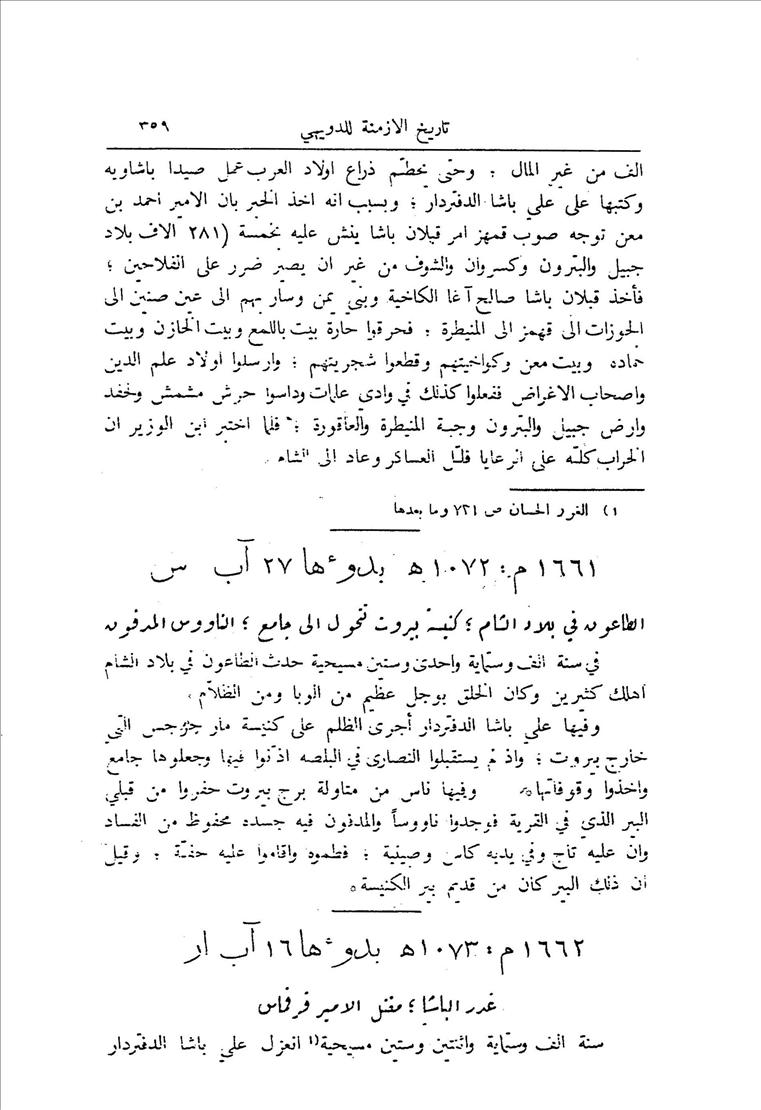 تاريخ الازمنة للدويهي ٣٥٩
الف من غير المال ؛ وحتى يخطّم ذراع اولاد العرب عمل صيدا باشاويه
وكتبها على علي باشا الدفتردار ؛ وبسبب انه اخذ الخبر بان الامير احمد بن
معن توجه صوب قمهز امر قبلان باشا ينش عليه بخمسة (٢٨١ الاف بلاد
جبيل والبترون وكسروان والشوف من غير ان يصير ضرر على الفلاحين ؛
فأخذ قبلان باشا صالح آغا الكاخية وبني يمن وسار بهم الى عين صنين الى
الجوزات الى قهمز الى المنيطرة ؛ فحرقوا حارة بيت باللمع وبيت الخازن وبيت
حماده وبيت معن وكواخيتهم وقطعوا شجريتهم ؛ وارسلوا اولاد علم الدين
واصحاب الاغراض ففعلوا كذلك في وادي علمات وداسوا حرش مشمش ولحفد
وارض جبيل والبترون وجبة المنيطرة والعاقورة ؛ فلما اختبر ابن الوزير ان
الخراب كلّه على الرعايا فلّل العساكر وعاد الى الشام .
١) الغرر الحسان ص ٧٢١ وما بعدها
١٦٦١ م : ١٠٧٢ ه بدوءها ٢٧ آب س
الطاعون في بلاد الشام ؛ كنيسة بيروت تتحول الى جامع ؛ الناووس المدفون
في سنة الف وستماية واحدى وستين مسيحية حدث الطاعون في بلاد الشام
اهلك كثيرين وكان الخلق بوجل عظيم من الوبا ومن الظلام .
وفيها علي باشا الدفتردار أجرى الظلم على كنيسة مار جرجس التي
خارج بيروت ؛ واذ لم يستقبلوا النصارى في البلصه اذّنوا فيها وجعلوها جامع
واخذوا وقوفاتها . وفيها ناس من متاولة برج بيروت حفروا من قبلي
البير الذي في القرية فوجدوا ناووساً والمدفون فيه جسده محفوظ من الفساد
وان عليه تاج وفي يديه كاس وصينية ؛ فطموه واقاموا عليه حفنة ؛ وقيل
ان ذلك البير كان من قديم بير الكنيسة .
١٦٦٢ م : ١٠٧٣ ه بدوءها ١٦ آب ار
غدر الباشا ؛ مقتل الامير قرقماس
سنة الف وستماية واثنتين وستين مسيحية(١ انعزل علي باشا الدفتردار